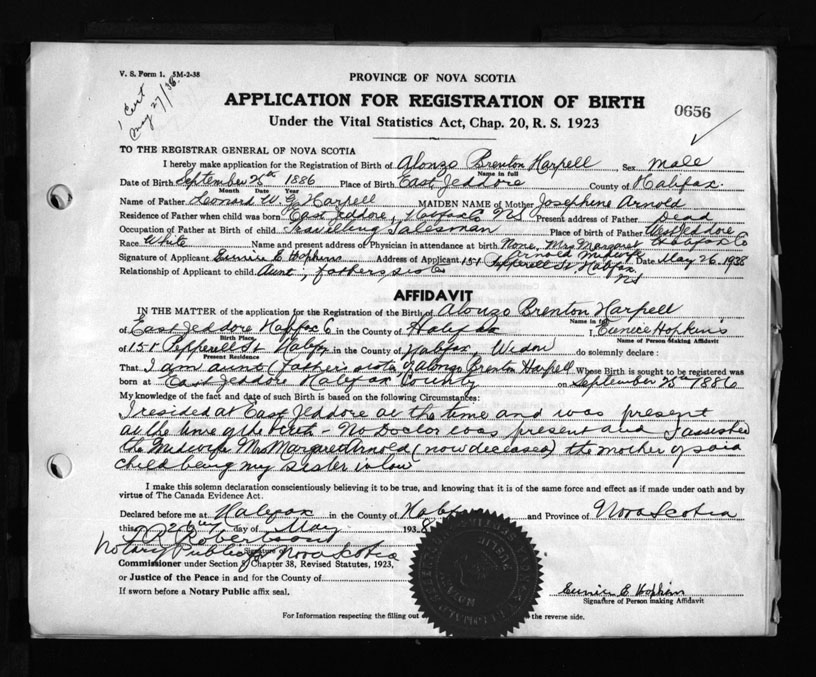 V. S. Form 1. 5M-2-38
1 Cert
May 27/38
PROVINCE OF NOVA SCOTIA
APPLICATION FOR REGISTRATION OF BIRTH
0656
Under the Vital Statistics Act, Chap. 20, R. S. 1923
TO THE REGISTRAR GENERAL OF NOVA SCOTIA
I hereby make application for the Registration of Birth of Alonzo Brenton Harpell, Sex male
Name in full
Date of Birth September 25th 1886 Place of Birth East Jeddore County of Halifax.
Month Date Year
Name of Father Leonard W. G. Harpell MAIDEN NAME of Mother Josephine Arnold
Residence of Father when child was born East Jeddore, Halifax Co NS Present address of Father Dead
Occupation of Father at Birth of child Travelling Salesman Place of birth of Father West Jeddore
Halifax Co
Race White Name and present address of Physician in attendance at birth None, Mrs Margaret
Arnold Midwife
Signature of Applicant Eunice E Hopkins Address of Applicant 151 Pepperell St Halifax Date May 26, 1938
NS
Relationship of Applicant to child Aunt, fathers sister
AFFIDAVIT
IN THE MATTER of the application for the Registration of the Birth of Alonzo Brenton Harpell
Name in full
of East Jeddore Halifax Co in the County of Halifax I, Eunice Hopkins
Birth Place Name of Person Making Affidavit
of 151 Pepperell St Halifax in the County of Halifax, Widow do solemnly declare :
Present Residence
That I am aunt (father's sister) of Alonzo Brenton Harpell Whose Birth is sought to be registered was
born at East Jeddore Halifax County on September 25th 1886
My knowledge of the fact and date of such Birth is based on the following Circumstances:
I resided at East Jeddore at the time and was present
at the time of the birth - No Doctor was present and I assisted
the Midwife Mrs Margaret Arnold (now deceased) the mother of said
child being my sister in law
I make this solemn declaration conscientiously believing it to be true, and knowing that it is of the same force and effect as if made under oath and by
virtue of The Canada Evidence Act.
Declared before me at Halifax in the County of Halifax and Province of Nova Scotia
this day of May 1938
Robertson
Notary Public for Nova Scotia
Signature of
Commissioner under Section 8, Chapter 38, Revised Statutes, 1923,
or Justice of the Peace in and for the County of
If sworn before a Notary Public affix seal.
Eunice E Hopkins
Signature of Person making Affidavit
For Information respecting the filling out the reverse side.